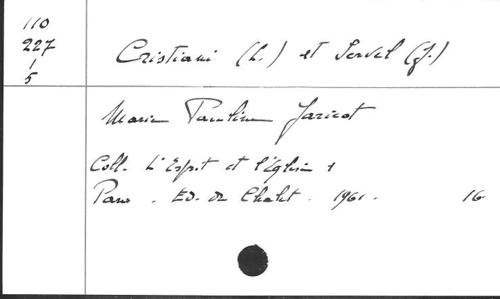 110
227
1
5
Cristiani (L.) et Servel (J.)
Marie Pauline Jaricot
Coll. L'Esprit et l'Eglise 1
Paris. Ed. du Chalet. 1961. 16